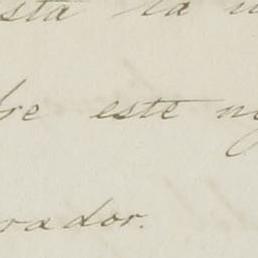 sta la
bre este
rador.